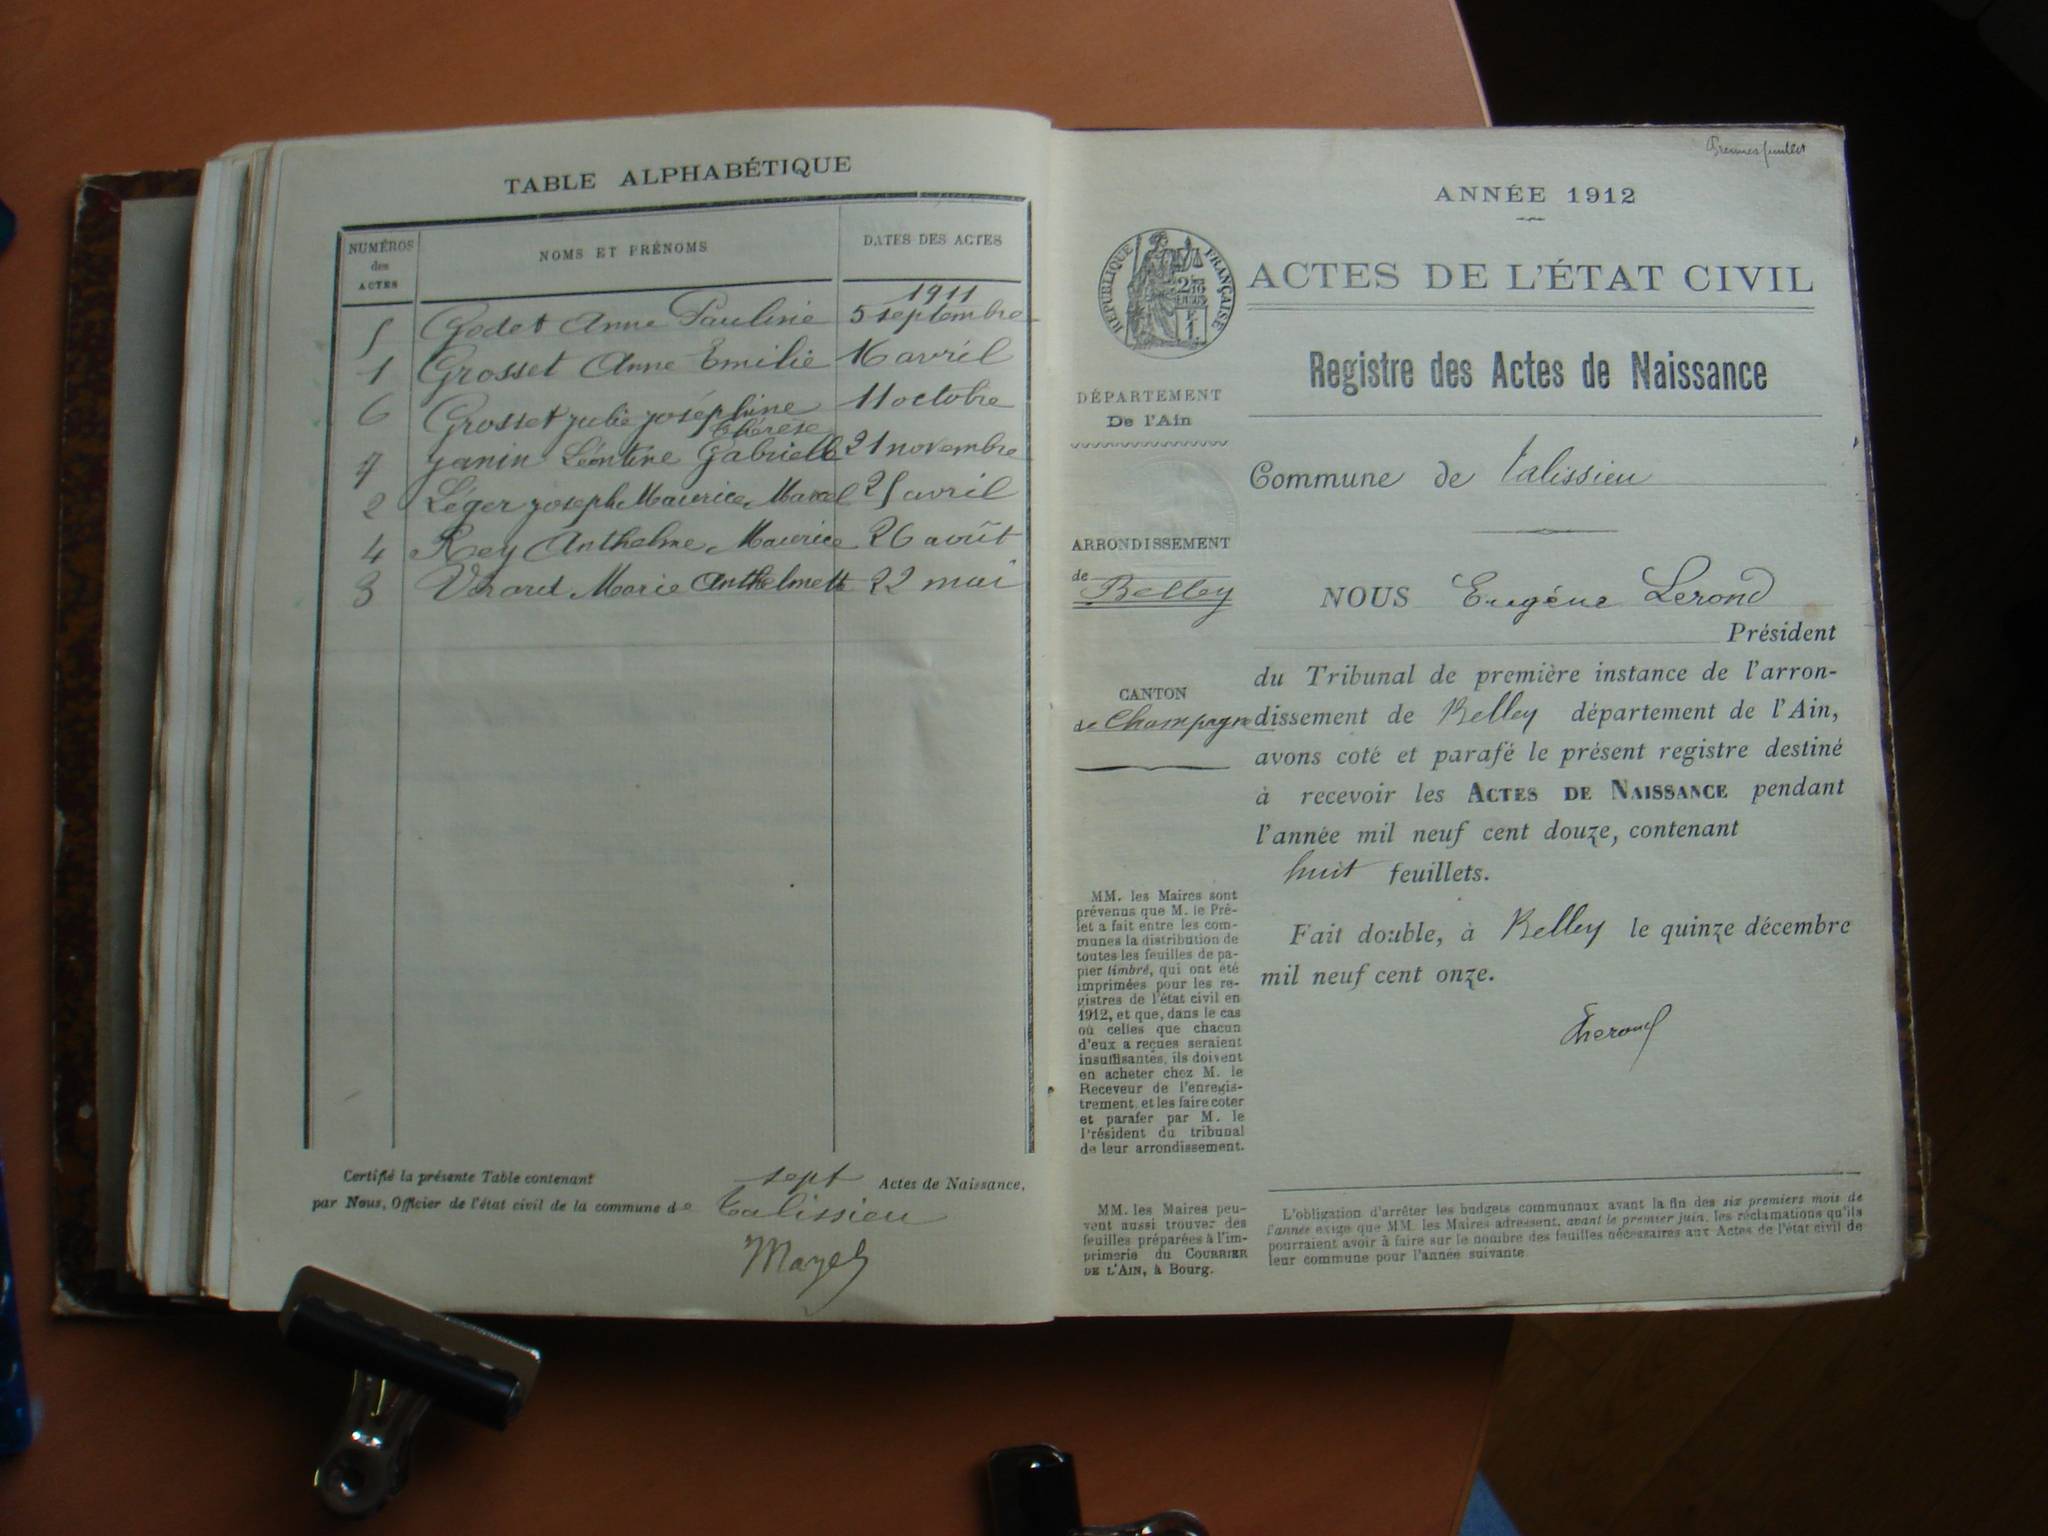 TABLE ALPHABÉTIQUE
NUMÉROS des ACTES
NOMS ET PRÉNOMS
DATES DES ACTES
1911
5 Godet Anne Pauline 5 septembre
1 Grosset Anne Emilie 16 avril
6 Grosset Julie Joséphine 11 octobre
Thérèse
7 Janin Léontine Gabrielle 21 novembre
2 Léger Joseph Maurice Marcel 25 avril
4 Rey Anthelme Maurice 26 août
3 Marie Anthelmette 22 mai
Certifié la présente Table contenant sept Actes de Naissance,
par Nous, Officier de l'état civil de la commune de Talissieu
ANNÉE 1912
RÉPUBLIQUE FRANÇAISE
ACTES DE L'ÉTAT CIVIL
Registre des Actes de Naissance
DÉPARTEMENT
De l'Ain
Commune de Talissieu
ARRONDISSEMENT
de Belley
NOUS Eugène Lerond
Président
CANTON
de Champagne
du Tribunal de première instance de l'arron-
dissement de Belley département de l'Ain,
avons coté et parafé le présent registre destiné
à recevoir les ACTES DE NAISSANCE pendant
l'année mil neuf cent douze, contenant
huit feuillets.
Fait double, à Belley le quinze décembre
mil neuf cent onze.
MM. les Maires sont
prévenus que M. le Pré-
fet a fait entre les com-
munes la distribution de
toutes les feuilles de pa-
pier timbré, qui ont été
imprimées pour les re-
gistres de l'état civil en
1912, et que, dans le cas
où celles que chacun
d'eux a reçues seraient
insuffisantes, ils doivent
en acheter chez M. le
Receveur de l'enregis-
trement, et les faire coter
et parafer par M. le
Président du tribunal
de leur arrondissement.
MM. les Maires peu-
vent aussi trouver des
feuilles préparées à l'im-
primerie du COURRIER
DE L'AIN, à Bourg.
L'obligation d'arrêter les budgets communaux avant la fin des six premiers mois de
l'année exige que MM. les Maires adressent, avant le premier juin, les réclamations qu'ils
pourraient avoir à faire sur le nombre des feuilles nécessaires aux Actes de l'état civil de
leur commune pour l'année suivante.